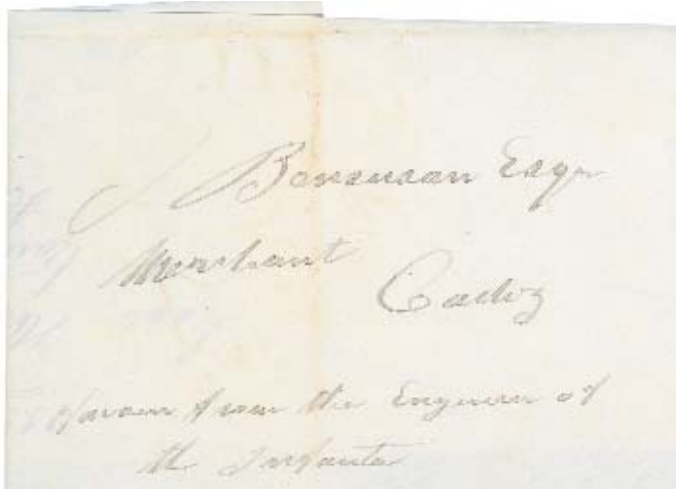 J Bensusan Esqr
Merchant
Cadiz
favour from the Engineer of
the Infanta